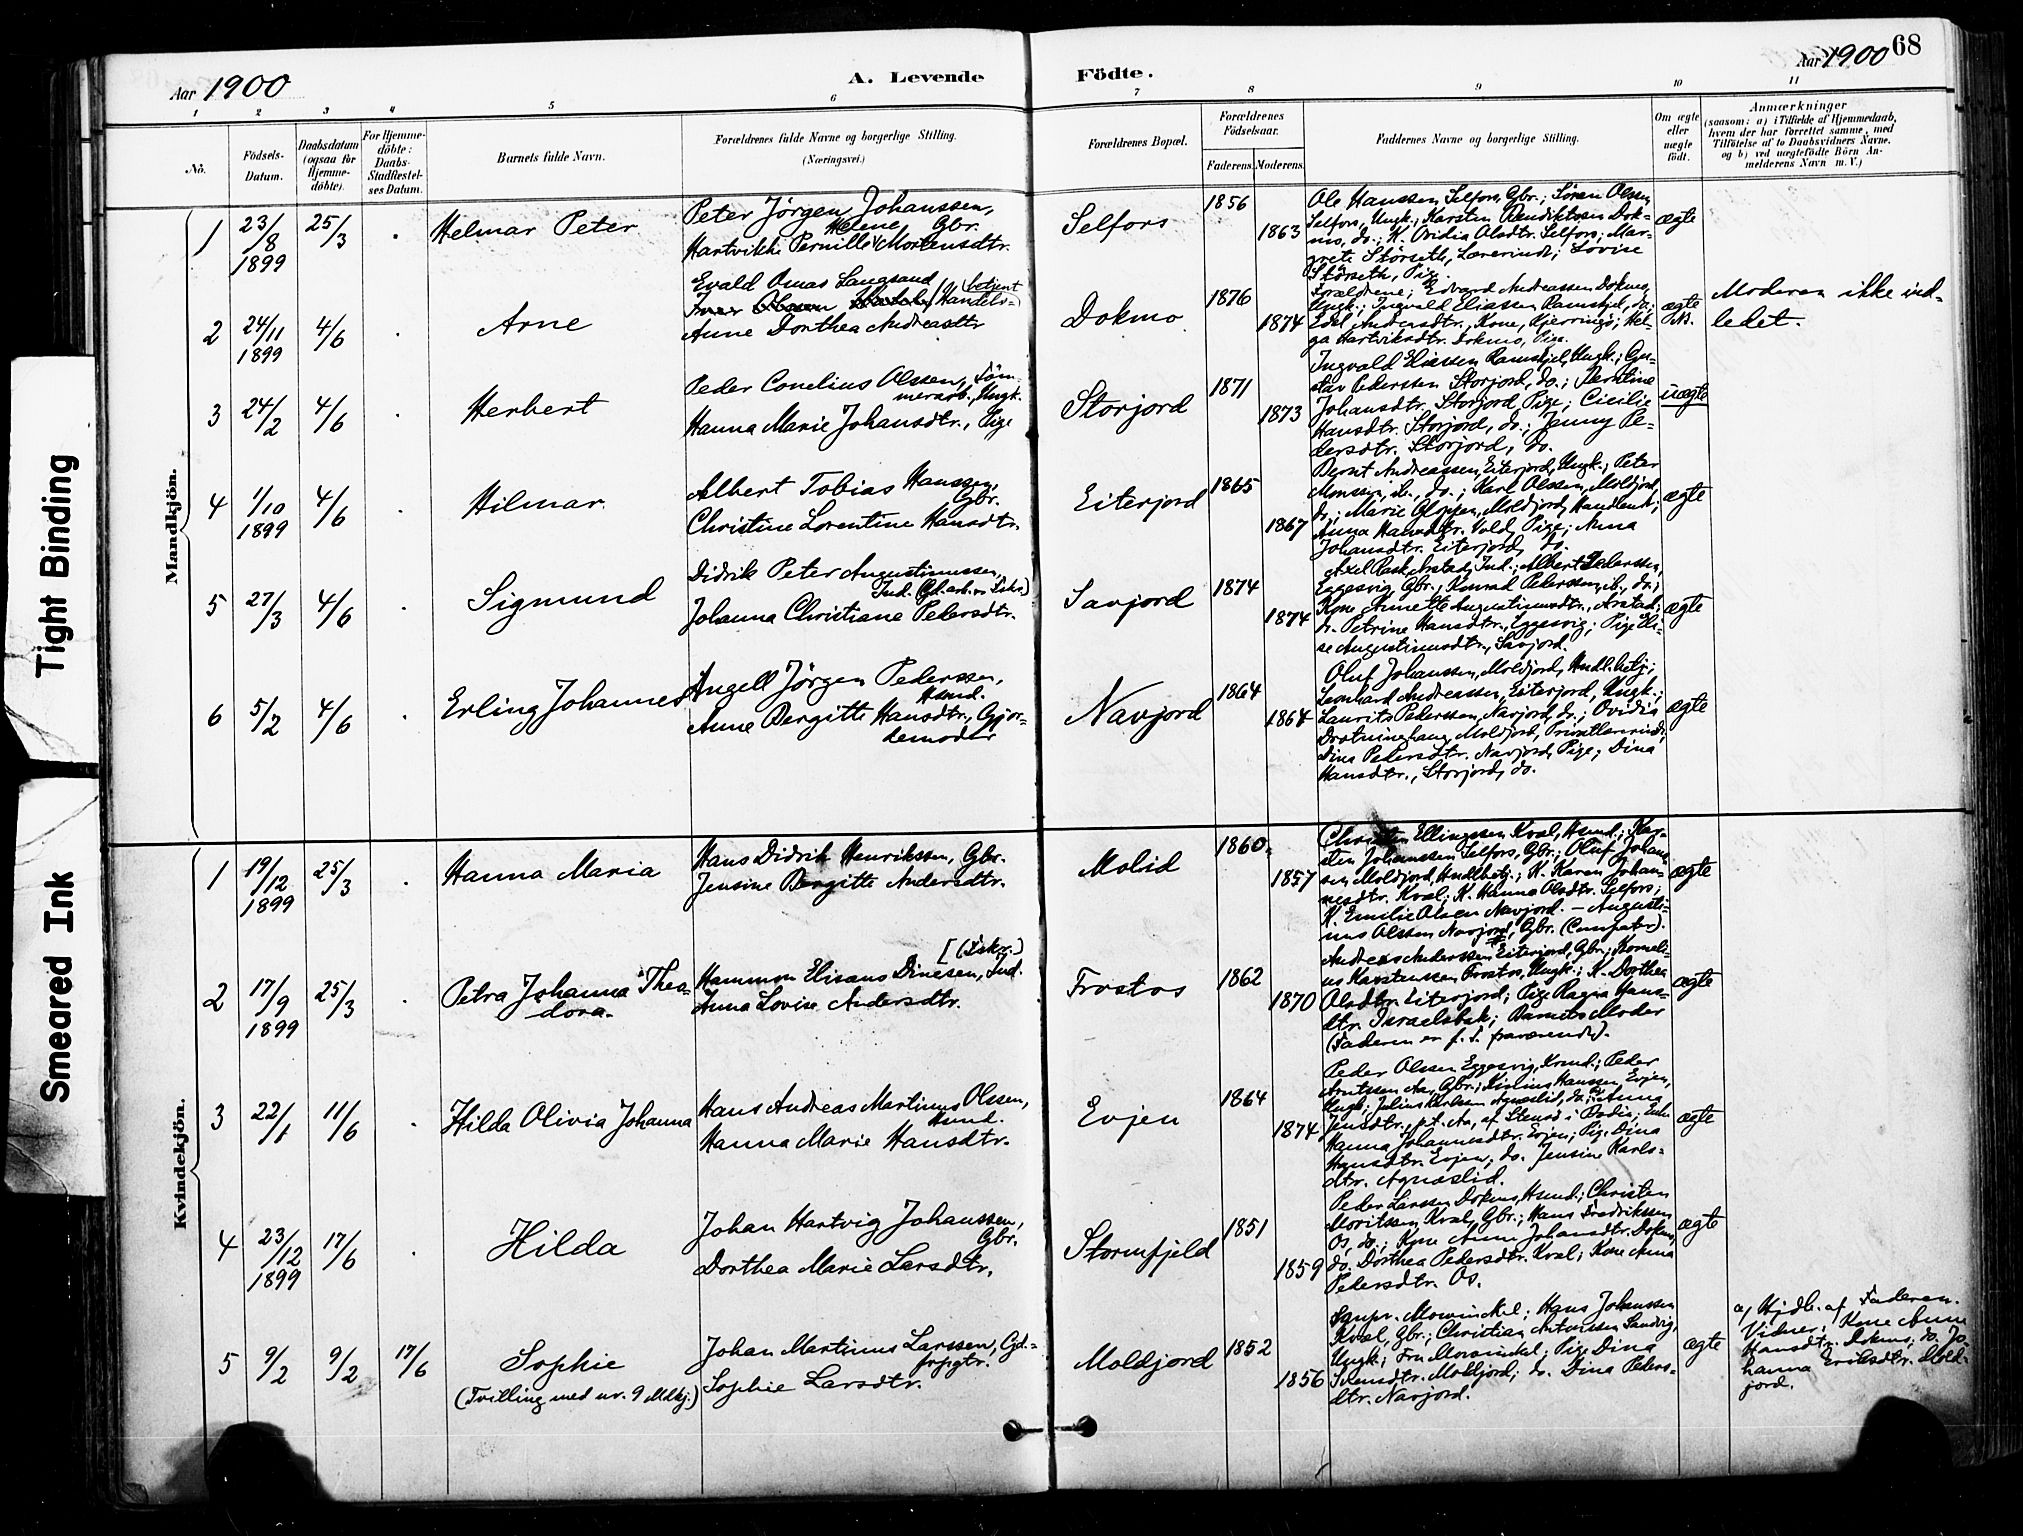 Tight Binding
Smeared Ink
68
Aar 1900
A. Levende
Födte.
Aar 1900
1 2 3 4 5 6 7 8 9 10 11
No.
Födsels-
Datum.
Daabsdatum
(ogsaa for
Hjemme-
döbte).
For Hjemme-
döbte:
Daabs-
Stadfæstel-
ses Datum.
Barnets fulde Navn.
Forældrenes fulde Navne og borgerlige Stilling.
(Næringsvei.)
Forældrenes Bopæl.
Forældrenes
Födselsaar.
Faderens.
Moderens.
Faddernes Navne og borgerlige Stilling.
Om ægte
eller
uægte
födt.
Anmærkninger
(saasom: a) i Tilfælde af Hjemmedaab,
hvem der har forrettet samme, med
Tilföielse af to Daabsvidners Navne,
og b) ved uægtefödte Börn An-
melderens Navn m. V.)
Mandkjön.
1
23/8
1899
25/3
Helmar Peter
Peter Jörgen Johanssen,
Helene Gbr.
Hartvikke Pernille Mortensdtr.
Selfors
1856
1863
Ole Hanssen Selfors, Gbr.; Sören Olssen
Selfors, Ungk.; Karsten Bendiktssen Dok-
mo, do.; K. Ovidia Olsdtr. Selfors; Mar-
grete Störseth, Lærerinde; Lovise
Störseth, Pige.
ægte
2
24/11
1899
4/6
Arne
Evald Omas Langsand
(betjent
Handels-)
Anne Dorthea Andreasdtr
Dokmo
1876
1874
Forældrene; Edvard Andreassen Dokmo,
Ungk.; Ingvald Eliassen Ramskjel, do.;
Edel Andersdtr., Kone, Kjerringö; Hel-
ga Hartviksdtr. Dokmo, Pige.
ægte
NB.
Moderen ikke ind-
ledet.
3
24/2
4/6
Herbert
Peder Conelius Olssen, Töm-
merarb., Ungk.
Hanna Marie Johansdtr., Pige
Storjord
1871
1873
Ingvald Eliassen Ramskjel, Ungk.; Gu-
stav Pederssen Storjord, do.; Berntine
Johansdtr. Storjord, Pige; Cicilie
Hansdtr. Storjord, do.; Jenny Pe-
dersdtr. Storjord, do.
uægte
4
1/10
1899
4/6
Hilmar
Albert Tobias Hanssen,
Gbr.
Christine Lorentine Hansdtr.
Eiterjord
1865
1867
Bernt Andreassen, Eiterjord, Ungk.; Peter
Monssen, ib., do.; Karl Olssen, Moldjord,
do.; Marie Olssen, Moldjord,
Anna Hansdtr. Vold, Pige; Anna
Johansdtr. Eiterjord, do.
ægte
5
27/3
4/6
Sigmund
Didrik Peter Augustinussen,
Johanna Christiane Petersdtr.
Savjord
1874
1874
Axel Rask Arstad, Ind.; Albert Pederssen
Eggesvig, Gbr.; Konrad Pederssen, ib., do.;
Kone Annette Augustinusdtr., Arstad;
do. Petrine Hansdtr., Eggesvig; Pige Eli-
se Augustinusdtr., Savjord.
ægte
6
5/2
4/6
Erling Johannes
Angell Jörgen Pederssen,
Hsmd.
Anne Bergitte Hansdtr., Gjor-
demoder
Navjord
1864
1864
Oluf Johanssen, Moldjord, Handl.betj.;
Leonhard Andreassen, Eiterjord, Ungk.;
Laurits Pederssen, Navjord, do.; Ovidia
Drotninghaug, Moldjord, Privatlærerinde;
Dina Pedersdtr. Navjord, Pige; Dina
Hansdtr., Storjord, do.
ægte
Kvindekjön.
1
19/12
1899
25/3
Hanna Maria
Hans Didrik Henrikssen, Gbr.
Jensine Bergitte Andersdtr.
Molid
1860
1857
Christen Ellingssen Kval, Hsmd.; Kar-
sten Johanssen Selfors, Gbr.; Oluf Johans-
sen Moldjord, Handlbetj.; K. Karen Johan-
nesdtr. Kval; K. Hanna Olsdtr. Selfors;
K. Emilie Olsen Navjord. – Augusti-
nus Olssen Navjord, Gbr.
ægte
2
17/9
1899
25/3
Petra Johanna Thea-
dora.
[(Fiskr.)
Hammon Elisæus Dinesen, Ind.
Anna Lovise Andersdtr.
Frostos
1862
1870
Andreas Anderssen Eiterjord, Gbr.; Korneli-
us Karstenssen Frostos, Ungk.; K. Dorthea
Olsdtr. Eiterjord; Pige Ragna Hans-
dtr. Israelsbak; Barnets Moder
(Faderen er f. T. fraværende).
ægte
3
22/1
11/6
Hilda Olivia Johanna
Hans Andreas Martinus Olssen,
Hsmd.
Hanna Marie Hansdtr.
Evjen
1864
1874
Peder Olssen Eggesvig, Peder
Arntssen Aa, Gbr.; Hanssen, Evjen,
Ungk.; Julius Karlssen Agnæslid, do.; Anna
Jensdtr., pt. Aa, af i Bodin;
Hanna Johannesdtr. Evjen; Pige Dina
Hansdtr. Evjen; do. Jensine Karls-
dtr. Agnæslid.
ægte
4
23/12
1899
17/6
Hilda
Johan Hartvig Johanssen,
Gbr.
Dorthea Marie Larsdtr.
Stormfjeld
1851
1859
Peder Larssen Dokmo, Hsmd.; Christen
Moritssen Kval, Gbr.; Hans Fredrikssen
Os, do.; Kone Anne Johansdtr. Dokmo,
do. Dorthea Pedersdtr. Kval; Kone Anna
Pedersdtr. Os.
ægte
5
9/2
9/2
17/6
Sophie
(Tvilling med nr. 9 Mdkj.)
Johan Martinus Larssen, Gd.-
frpgtr.
Sophie Larsdtr.
Moldjord
1852
1856
Sgnpr. Mowinckel; Hans Johanssen
Kval, Gbr.; Christian Antonssen Sandvig,
Ungk.; Fru Mowinckel; Pige Dina
Moldjord; do. Dina Peders-
dtr. Navjord.
ægte
a) Hjdb. af Faderen.
Vidner: Kone Anne
Hansdtr. Dokmo; do. Jo-
hanna Eriksdtr. Mold-
jord.